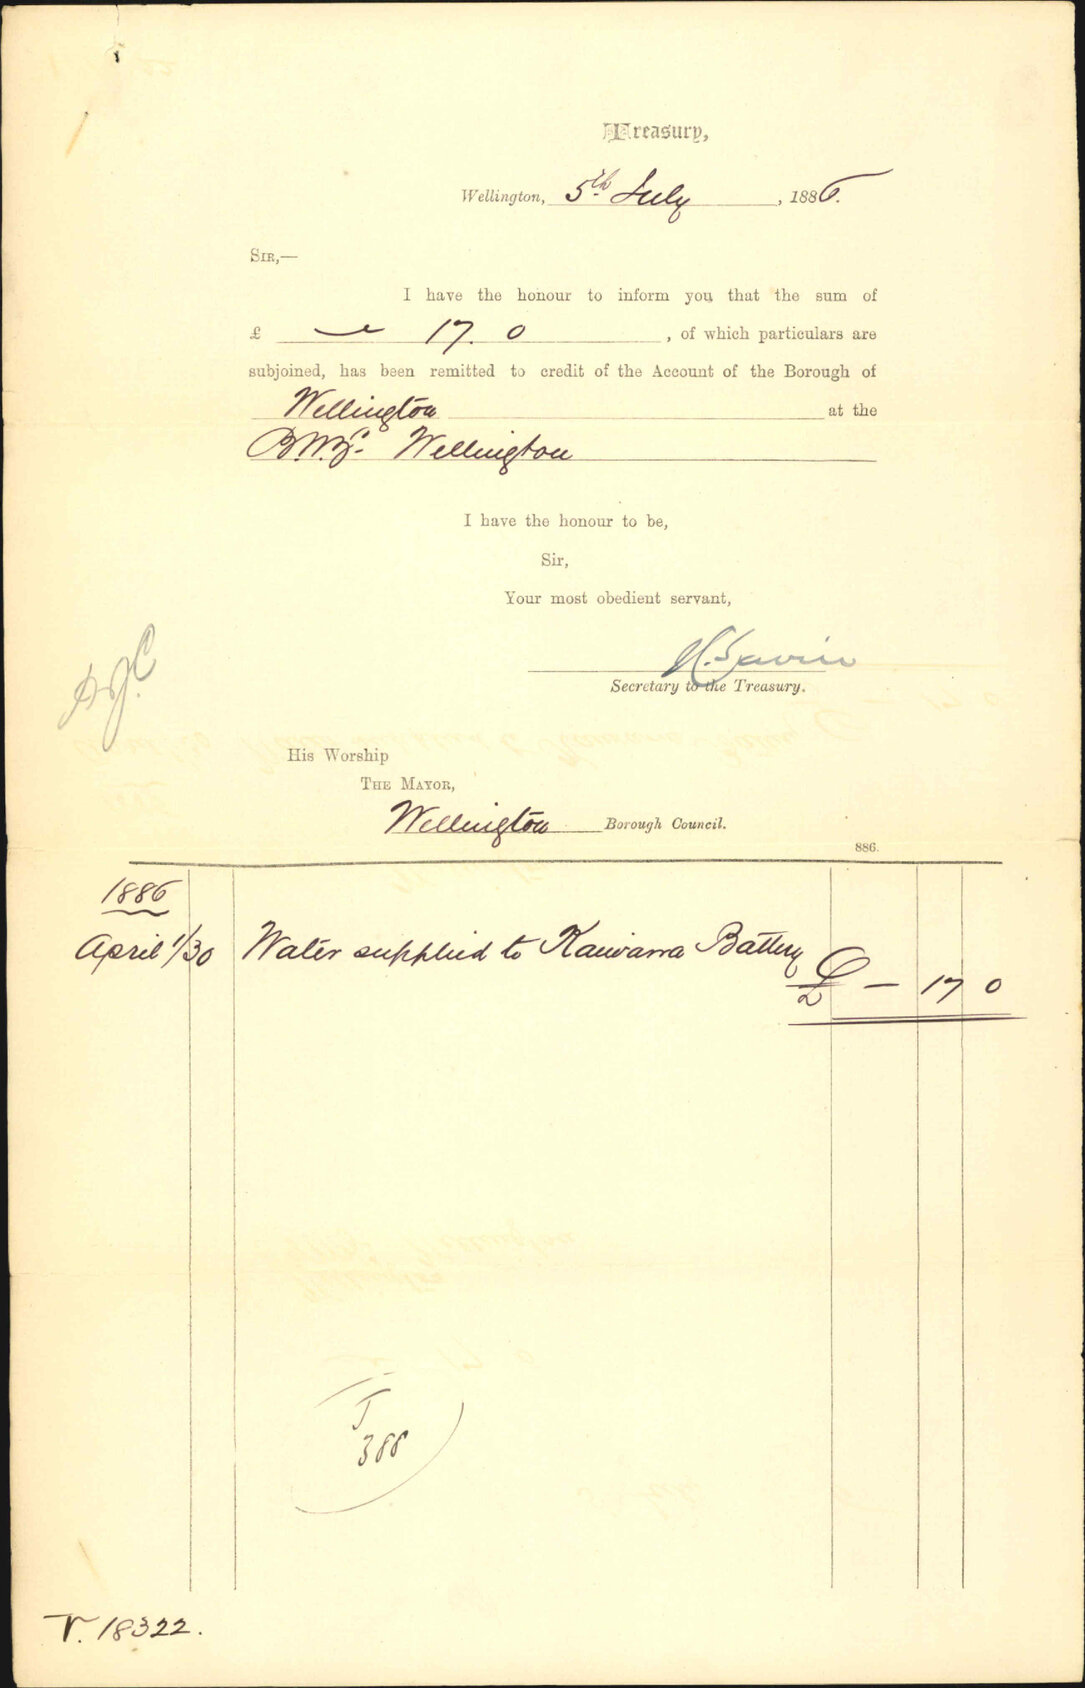 Treasury,
Wellington, 5th July, 1886.
SIR,—
I have the honour to inform you that the sum of
£ — 17. 0, of which particulars are
subjoined, has been remitted to credit of the Account of the Borough of
Wellington at the
B.N.Z. Wellington
I have the honour to be,
Sir,
Your most obedient servant,
Secretary to the Treasury.
His Worship
THE MAYOR,
Wellington Borough Council.
886.
1886
April 1/30 Water supplied to Kaiwarra Battery
£ — 17 0
T
388
V. 18322.